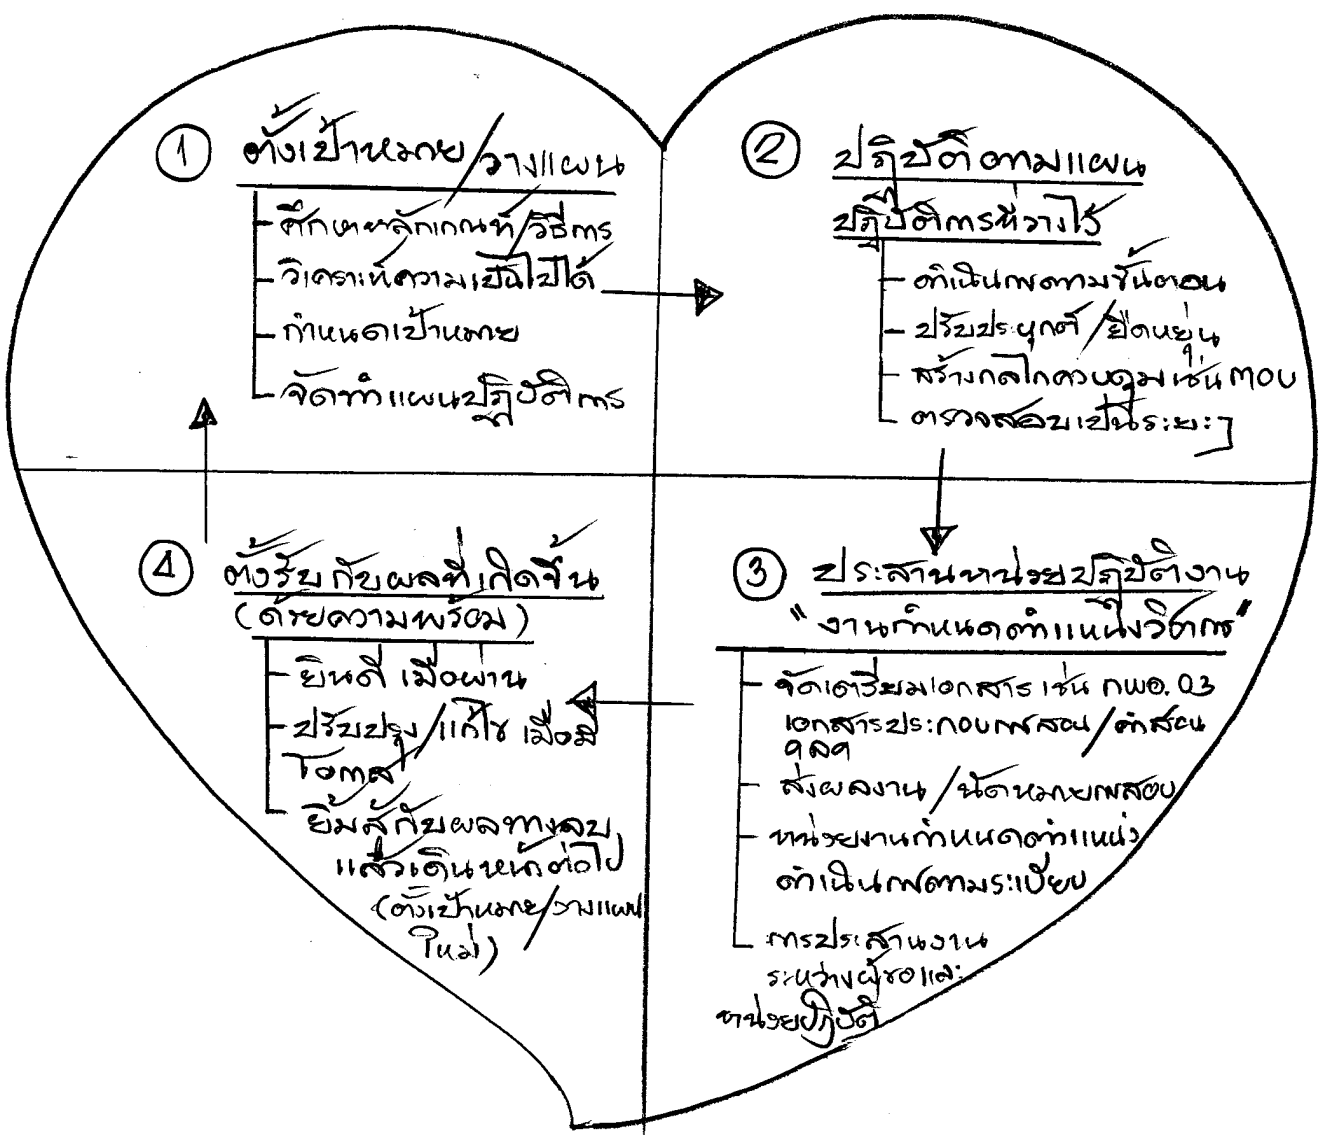 ① ตั้งเป้าหมาย/วางแผน
- ศึกษาหลักเกณฑ์/วิธีการ
- วิเคราะห์ความเป็นไปได้
- กำหนดเป้าหมาย
- จัดทำแผนปฏิบัติการ
② ปฏิบัติตามแผน
ปฏิบัติการที่วางไว้
- ดำเนินการตามขั้นตอน
- ปรับประยุกต์/ยืดหยุ่น
- สร้างกลไกควบคุม เช่น
- ตรวจสอบเป็นระยะๆ
③ ประสานหน่วยปฏิบัติงาน
"งานกำหนดตำแหน่งวิชาการ"
- จัดเตรียมเอกสาร เช่น กพอ. 03
เอกสารประกอบการสอน/คำสอน
ฯลฯ
- ส่งผลงาน/นัดหมายการสอบ
- หน่วยงานกำหนดตำแหน่ง
ดำเนินการตามระเบียบ
- การประสานงาน
ระหว่างผู้ขอและ
หน่วยปฏิบัติ
④ ตั้งรับกับผลที่เกิดขึ้น
(ด้วยความพร้อม)
- ยินดี เมื่อผ่าน
- ปรับปรุง/แก้ไข เมื่อมี
โอกาส
- ยิ้มสู้กับผลทางลบ
แล้วเดินหน้าต่อไป
(ตั้งเป้าหมาย/วางแผน
ใหม่)